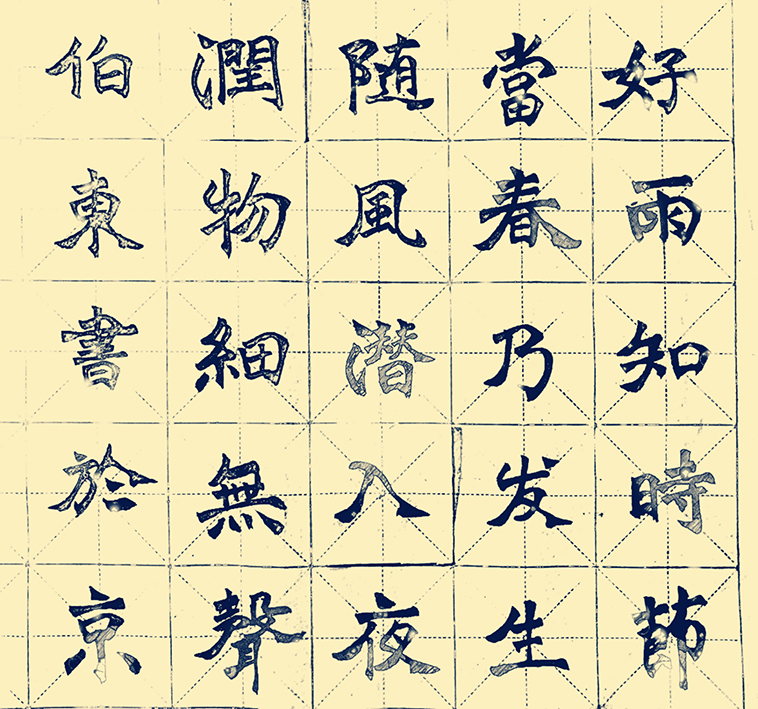 好雨知時節
當春乃发生
随風潜入夜
潤物細無聲
伯東書於京